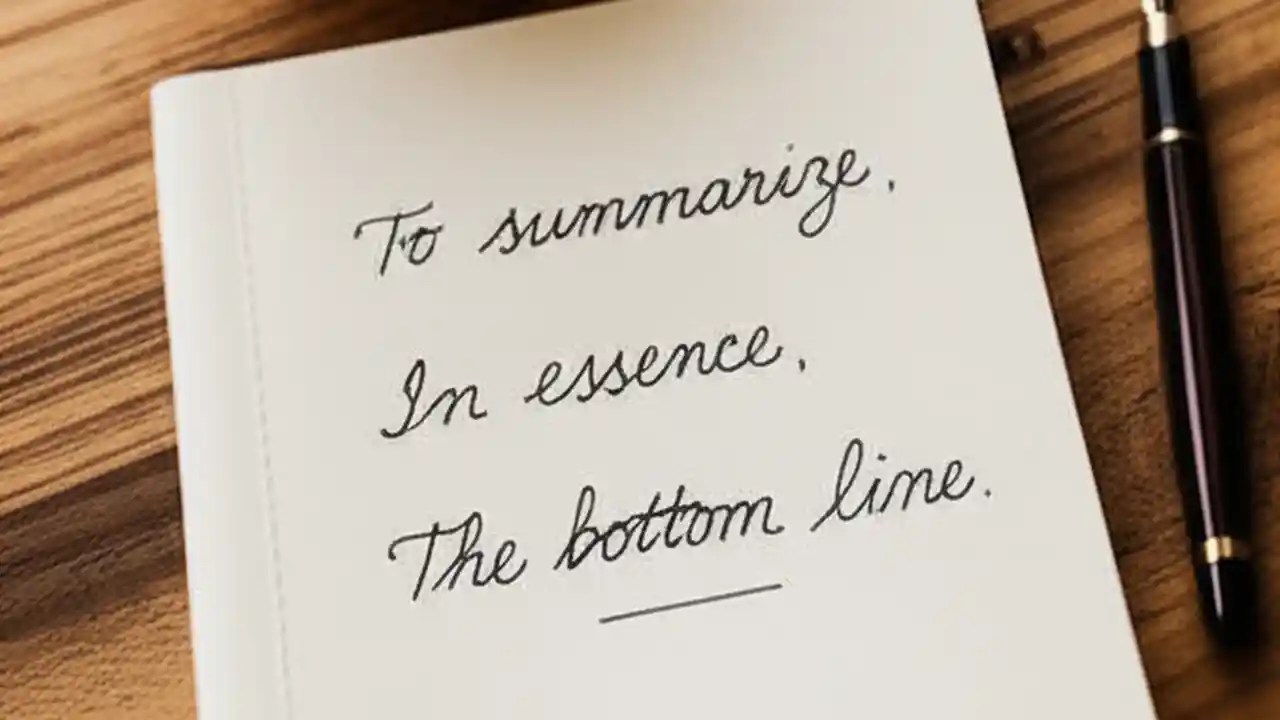 To summarize.
In essence.
The bottom line.